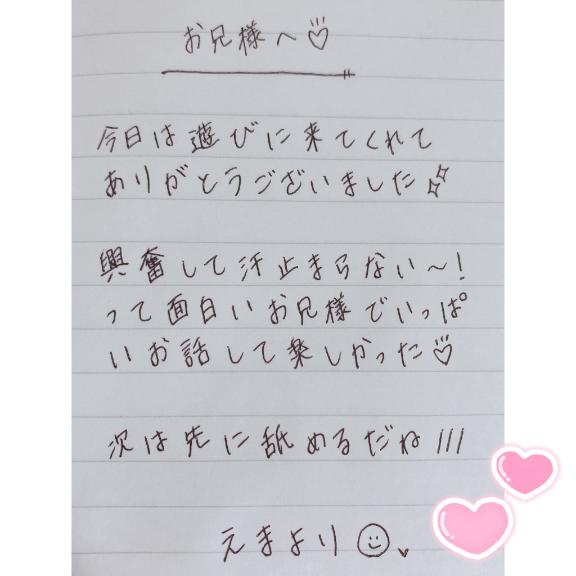 お兄様へ♡
今日は遊びに来てくれて
ありがとうございました✨
興奮して汗止まらない〜!
って面白いお兄様でいっぱ
いお話して楽しかった♡
次は先に舐めるだね///
えまより☺